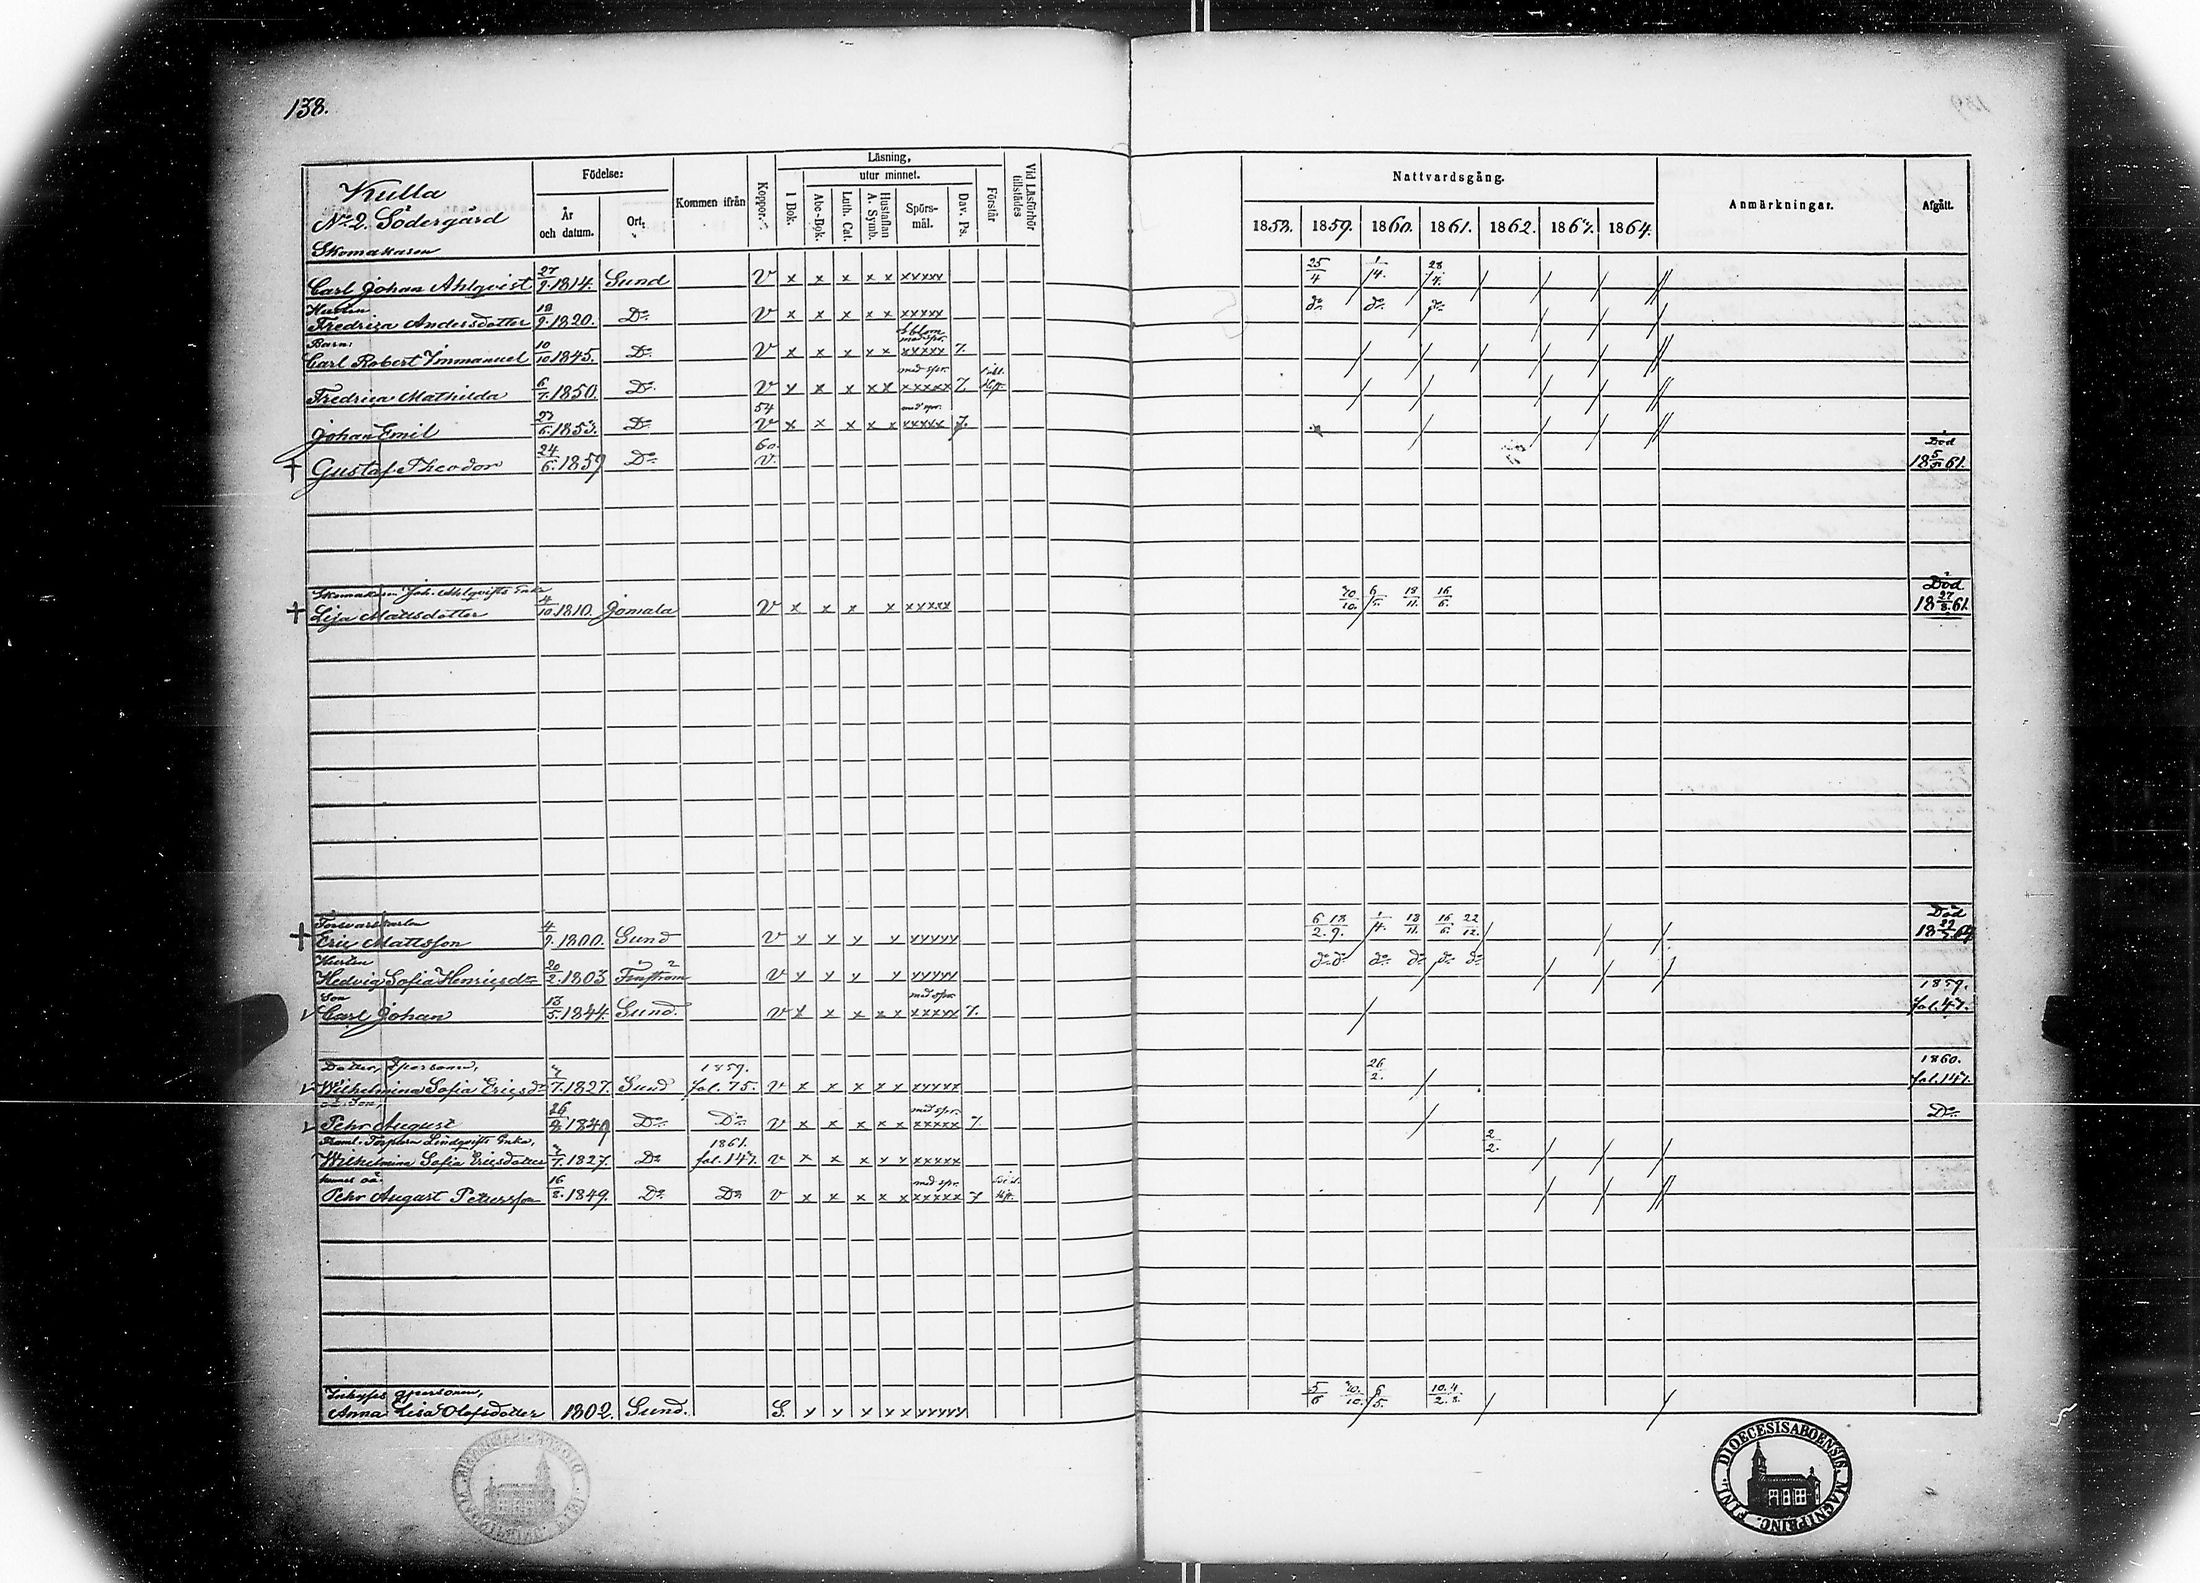 138.
Kulla
No 2. Södergård
Födelse:
År och datum.
Ort.
Kommen ifrån
Koppor.
Läsning,
I Bok.
utur minnet.
Abc-Bok.
Luth. Cat.
Hustaflan A. Symb.
Spörsmål.
Dav. Ps.
Förstår
Vid Läsförhör tillstädes
Nattvardsgång.
1858. 1859. 1860. 1861. 1862. 1863. 1864.
Anmärkningar.
Afgått.
Skomakaren
Carl Johan Ahlqvist 27/9. 1814. Sund V x x x x x xxxxx 25/4 1/4. 28/4.
Hustru
Fredrica Andersdotter 18/9. 1820. Do V x x x x x xxxxx do do do
Barn:
Carl Robert Immanuel 10/10 1845. Do V x x x x x med spr. xxxxx 7.
Fredrica Mathilda 6/7. 1850. Do V x x x x x med spr. xxxxx 7.
Johan Emil 27/6. 1853. Do 54 V x x x x x med spr. xxxxx 7.
+ Gustaf Theodor 24/6. 1859 Do 60. V. Död 18 5/ 61.
Skomakaren Joh. Ahlqvists Enka
+ Lisa Mattsdotter 4/10. 1810. Jomala V x x x x xxxxx 6/5. 18/11. 16/6. Död 18 27/8. 61.
+ Eric Mattsson 4/9. 1800. Sund V x x x x xxxxx 6/2. 18/9. 1/4. 18/11. 16/6. 22/12. Död
Hustru
Hedvig Sofia Henricsdr 20/2. 1803 Finström V x x x x xxxxx do do do do do do
Son
Carl Johan 13/5. 1844. Sund. V x x x x x med spr. xxxxx 7. 1859. fol. 47.
Dotter, Qpersonen,
Wilhelmina Sofia Ericsdr 1827. Sund 1859. fol. 75. V x x x x x xxxxx 26/2. 1860. fol. 147.
oä. Son,
Pehr August 1849 Do Do V x x x x x med spr. xxxxx 7. Do
Framl. Torparn Lindqvists Enka,
Wilhelmina Sofia Ericsdotter 1827. Do 1861. fol. 147. V x x x x x xxxxx 2/2.
hennes oä.
Pehr August Petersson 16/8. 1849. Do Do V x x x x x med spr. xxxxx 7
Inhyses qpersonen,
Anna Lisa Olofsdotter 1802. Sund. S. x x x x x xxxxx 5/6 6/5. 10/2. 4/8.
DIOECESIS ABOENSIS. MAGNI PRINC. FINL.